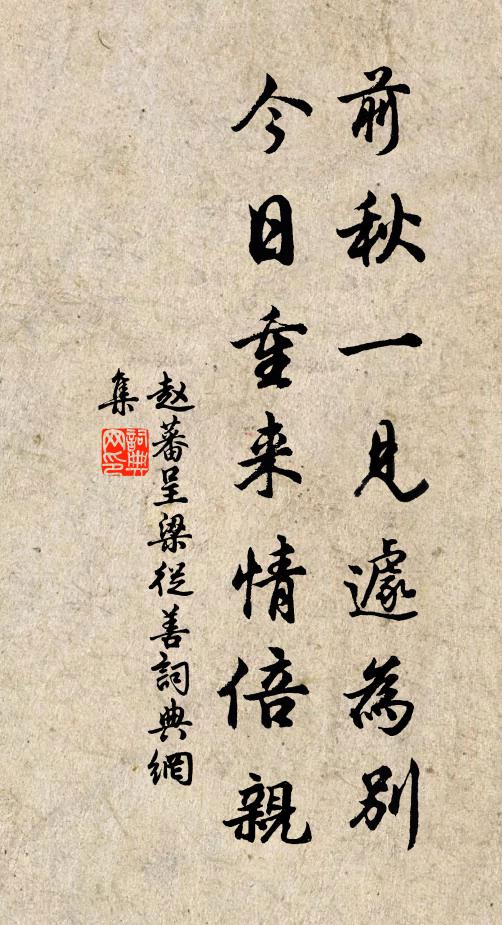 前秋一見遽為別
今日重来情倍親
赵蕃呈梁從善詞典網
集
詞典
网印